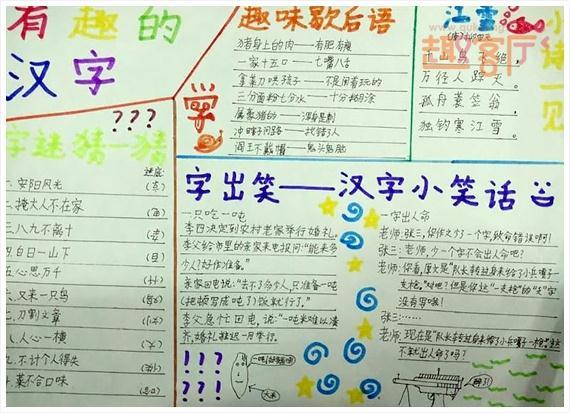 有趣的
汉字
趣味歇后语
猪身上的肉——有肥有瘦
一家十五口——七嘴八舌
拿菜刀哄孩子——不是闹着玩的
三分面粉七分水——十分糊涂
属豪猪的——浑身是刺
冲瞎子问路——找错了人
阎王不戴帽——鬼头鬼脸
学
江雪
千山鸟飞绝,
万径人踪灭。
孤舟蓑笠翁,
独钓寒江雪。
小诗一
趣客厅
???
字谜猜一猜
谜底:
一、安阳风光
二、掩大人不在家
三、八九不离十
四、白日一山下
五、心思万千
六、又来一只鸟
七、刀割文章
八、人心一横
九、不讨个人得失
十、菜不合口味
字出笑——汉字小笑话
一只吃一吨
李四决定到农村老家举行婚礼,
李父给市里的亲家来电报问:“能来多
少人?好作准备。”
亲家回电说:“去不了多个人,只准备一吨
(把顿写成吨了)饭就行了。”
李父急忙回电,说:“一吨米难以凑
齐,婚礼推迟一月举行。
!!!
???
大米
一字出人命
老师:张三,你作文少了一个字,致命错误啊!
张三:老师,少一个字不会出人命吧?
老师:你看,原文是“队长转过身来给了小兵嘴子
一支枪。”对吧?但是你这“一支枪”的“支”字
没有写啦!
张三:……
老师:现在是“队长转过身来给了小兵嘴子一枪。”这
不就出人命了吗?